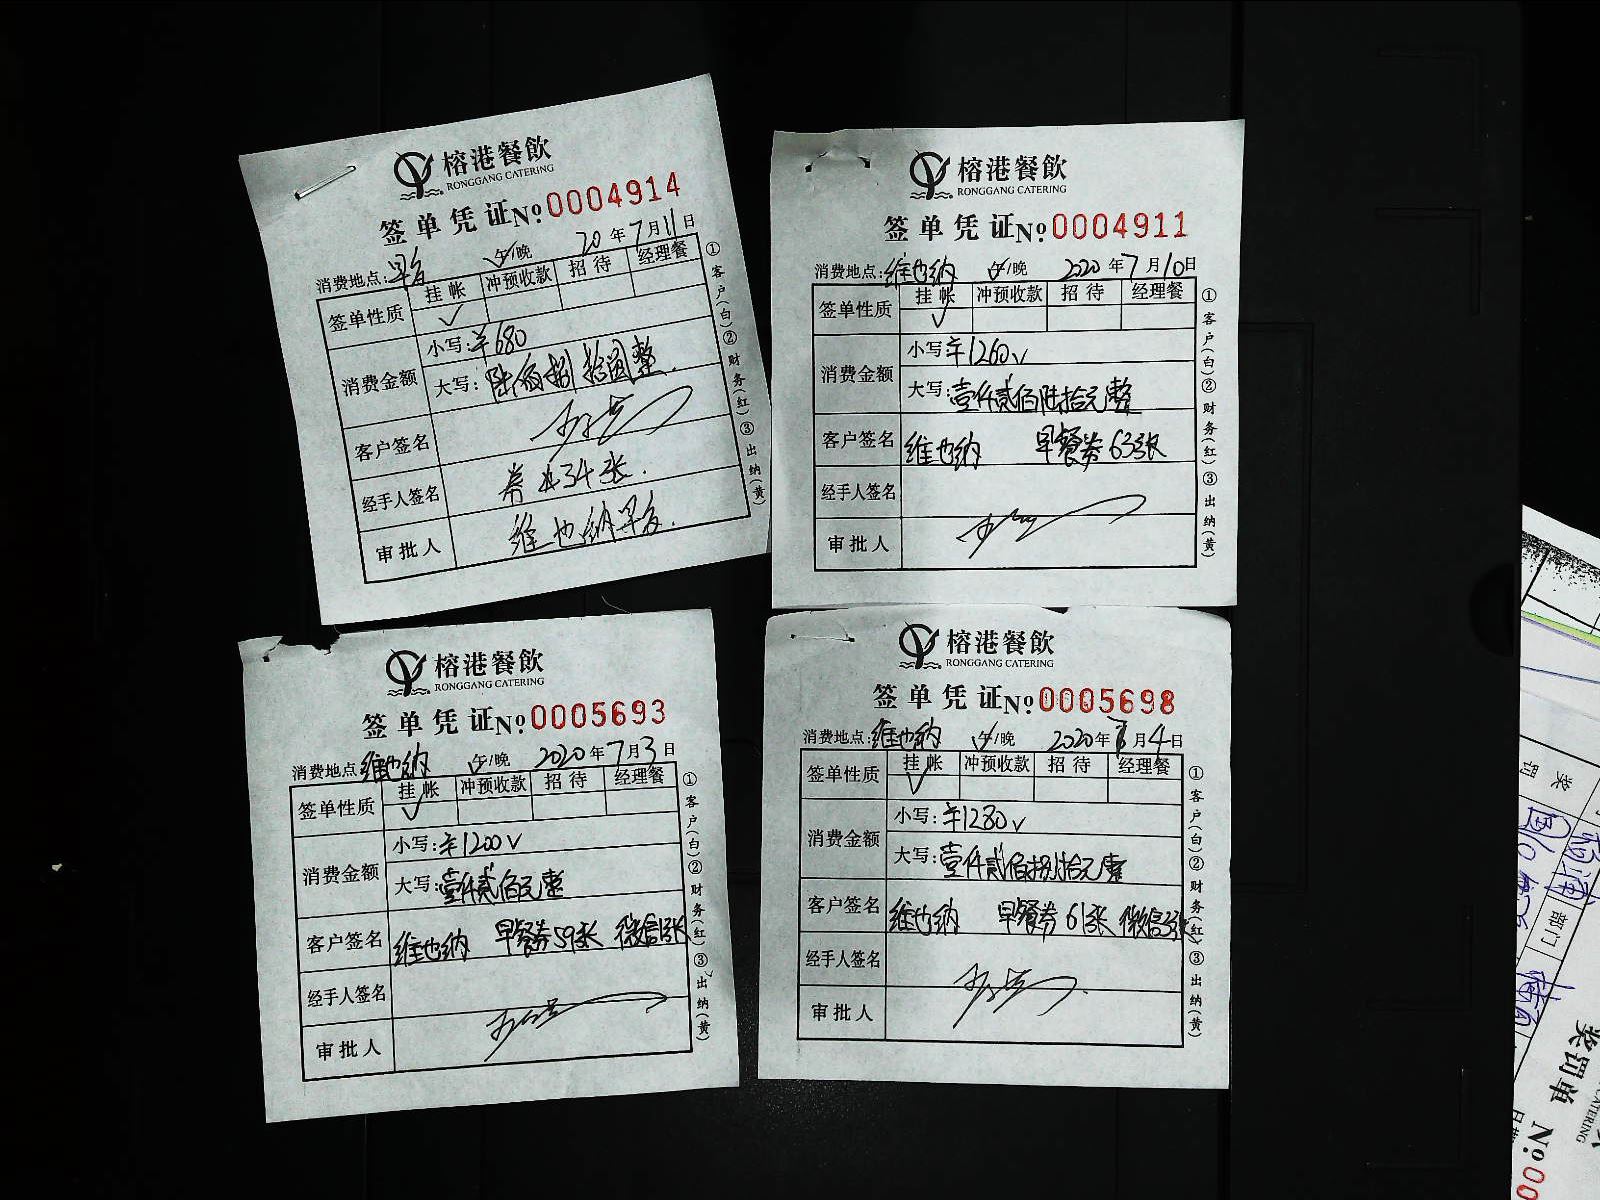 榕港餐飲
RONGGANG CATERING
签单凭证 No 0004914
消费地点: 午/晚 20年7月11日
签单性质 挂帐 冲预收款 招待 经理餐
✓
消费金额 小写: ¥680
大写: 陆佰捌拾圆整.
客户签名
经手人签名 券#34张.
审批人 维也纳早.
①客户(白)②财务(红)③出纳(黄)
榕港餐飲
RONGGANG CATERING
签单凭证 No 0004911
消费地点: 维也纳 午/晚 2020年7月10日
签单性质 挂帐 冲预收款 招待 经理餐
✓
消费金额 小写: ¥1260
大写: 壹仟贰佰陆拾元整
客户签名 维也纳 早餐券63张
经手人签名
审批人
①客户(白)②财务(红)③出纳(黄)
榕港餐飲
RONGGANG CATERING
签单凭证 No 0005693
消费地点: 维也纳 午/晚 2020年7月3日
签单性质 挂帐 冲预收款 招待 经理餐
✓
消费金额 小写: ¥1200
大写: 壹仟贰佰元整
客户签名 维也纳 早餐券59张 微信1张
经手人签名
审批人
①客户(白)②财务(红)③出纳(黄)
榕港餐飲
RONGGANG CATERING
签单凭证 No 0005698
消费地点: 维也纳 午/晚 2020年7月4日
签单性质 挂帐 冲预收款 招待 经理餐
✓
消费金额 小写: ¥1280
大写: 壹仟贰佰捌拾元整
客户签名 维也纳 早餐券61张 微信3张
经手人签名
审批人
①客户(白)②财务(红)③出纳(黄)
奖罚单
CATERING
No 00
部门
奖
罚